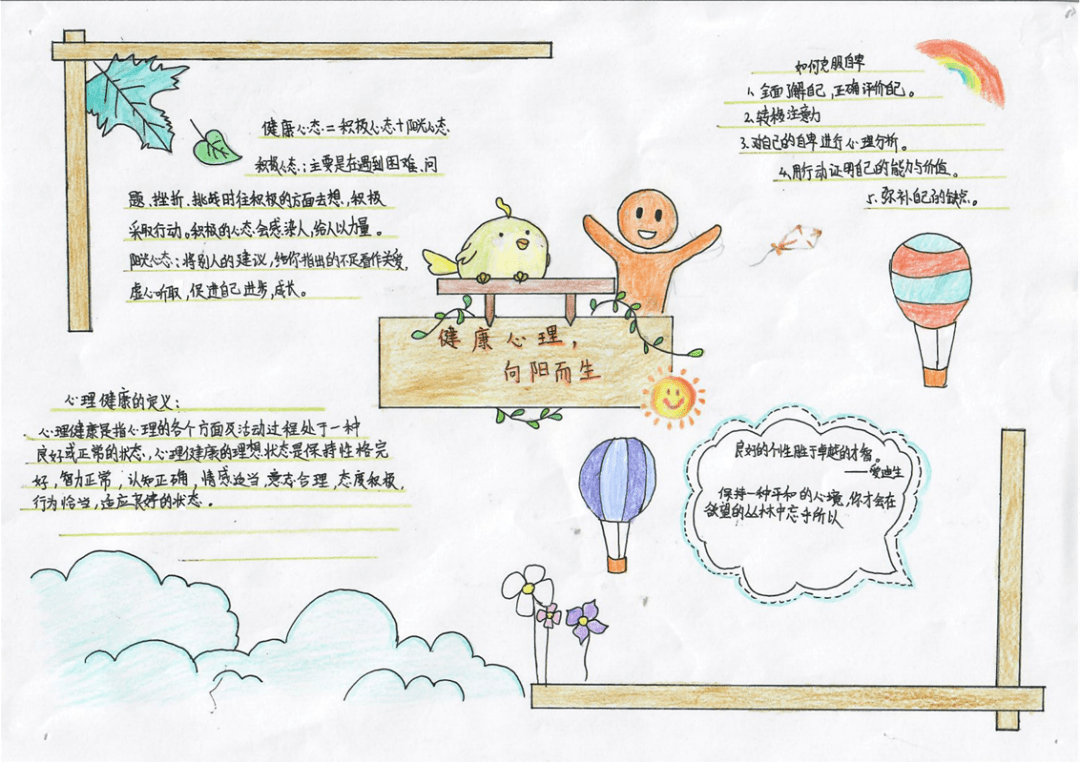 健康心态=积极心态+阳光心态
积极心态:主要是在遇到困难、问
题、挫折、挑战时往积极的方面去想,积极
采取行动。积极的心态会感染人,给人以力量。
阳光心态:将别人的建议,给你指出的不足看作关爱,
虚心听取,促进自己进步,成长。
如何克服自卑
1、全面了解自己,正确评价自己。
2、转移注意力
3、对自己的自卑进行心理分析。
4、用行动证明自己的能力与价值。
5、弥补自己的缺点。
健康心理,
向阳而生
心理健康的定义:
心理健康是指心理的各个方面及活动过程处于一种
良好或正常的状态,心理健康的理想状态是保持性格完
好,智力正常,认知正确,情感适当,意志合理,态度积极,
行为恰当,适应良好的状态。
良好的个性胜于卓越的才智。
——爱迪生
保持一种平和的心境,你才会在
欲望的丛林中忘乎所以